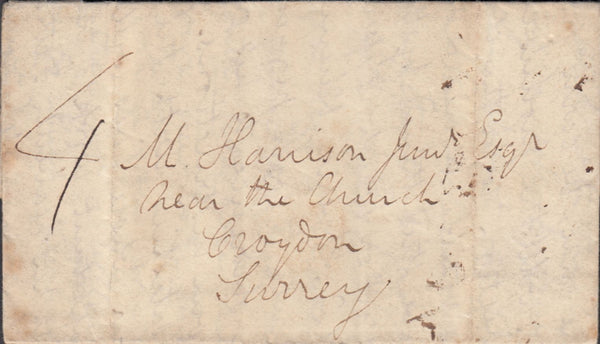 4
M. Harrison Junr Esqr
near the Church
Croydon
Surrey